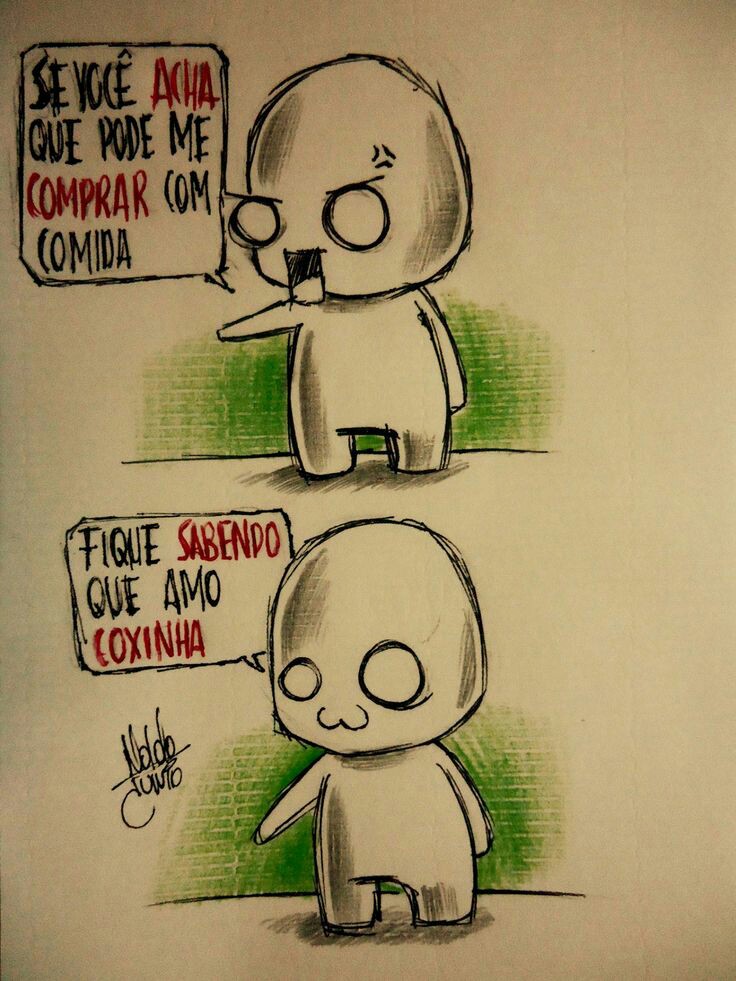 SE VOCÊ ACHA
QUE PODE ME
COMPRAR COM
COMIDA
FIQUE SABENDO
QUE AMO
COXINHA